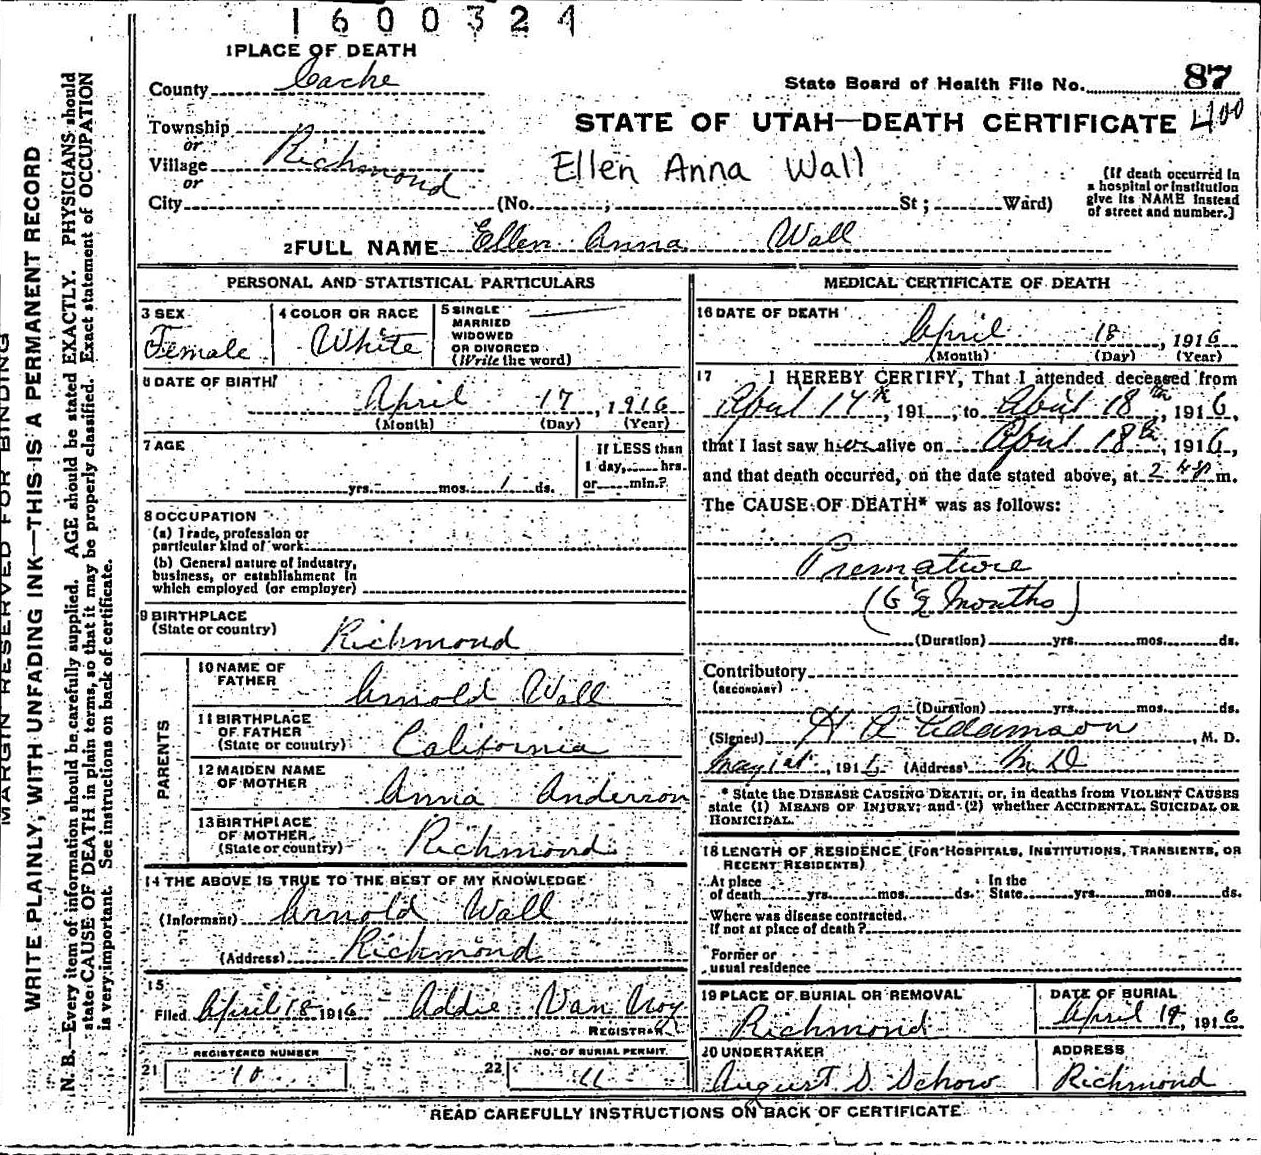 1600324
1 PLACE OF DEATH
County Cache
State Board of Health File No. 87
Township
or
Village Richmond
or
City (No. ; St; Ward)
STATE OF UTAH—DEATH CERTIFICATE 400
Ellen Anna Wall
(If death occurred in
a hospital or institution
give its NAME instead
of street and number.]
2 FULL NAME Ellen Anna Wall
PERSONAL AND STATISTICAL PARTICULARS
3 SEX
Female
4 COLOR OR RACE
White
5 SINGLE
MARRIED
WIDOWED
OR DIVORCED
(Write the word)
6 DATE OF BIRTH
April 17, 1916
(Month) (Day) (Year)
7 AGE
yrs. mos. 1 ds.
If LESS than
1 day, hrs.
or min.?
8 OCCUPATION
(a) Trade, profession or
particular kind of work
(b) General nature of industry,
business, or establishment in
which employed (or employer)
9 BIRTHPLACE
(State or country) Richmond
PARENTS
10 NAME OF
FATHER Arnold Wall
11 BIRTHPLACE
OF FATHER
(State or country) California
12 MAIDEN NAME
OF MOTHER Anna Anderson
13 BIRTHPLACE
OF MOTHER
(State or country) Richmond
14 THE ABOVE IS TRUE TO THE BEST OF MY KNOWLEDGE
(Informant) Arnold Wall
(Address) Richmond
15
Filed April 18 1916 Addie Van Noy
REGISTRAR
REGISTERED NUMBER
21 10
NO. OF BURIAL PERMIT
22 11
MEDICAL CERTIFICATE OF DEATH
16 DATE OF DEATH
April 18, 1916
(Month) (Day) (Year)
17 I HEREBY CERTIFY, That I attended deceased from
April 17th, 191 , to April 18th, 1916,
that I last saw her alive on April 18th, 1916,
and that death occurred, on the date stated above, at 2 m.
The CAUSE OF DEATH* was as follows:
Premature
(6½ Months)
(Duration) yrs. mos. ds.
Contributory
(SECONDARY)
(Duration) yrs. mos. ds.
(Signed) H A Adamson, M. D.
May 1st, 1916 (Address) M D
* State the DISEASE CAUSING DEATH, or, in deaths from VIOLENT CAUSES
state (1) MEANS OF INJURY; and (2) whether ACCIDENTAL, SUICIDAL OR
HOMICIDAL.
18 LENGTH OF RESIDENCE (FOR HOSPITALS, INSTITUTIONS, TRANSIENTS, OR
RECENT RESIDENTS)
At place
of death yrs. mos. ds.
In the
State yrs. mos. ds.
Where was disease contracted.
If not at place of death?
Former or
usual residence
19 PLACE OF BURIAL OR REMOVAL
Richmond
DATE OF BURIAL
April 19, 1916
20 UNDERTAKER
August S Schow
ADDRESS
Richmond
READ CAREFULLY INSTRUCTIONS ON BACK OF CERTIFICATE
MARGIN RESERVED FOR BINDING
WRITE PLAINLY, WITH UNFADING INK—THIS IS A PERMANENT RECORD
N. B.—Every item of information should be carefully supplied. AGE should be stated EXACTLY. PHYSICIANS should
state CAUSE OF DEATH in plain terms, so that it may be properly classified. Exact statement of OCCUPATION
is very important. See instructions on back of certificate.